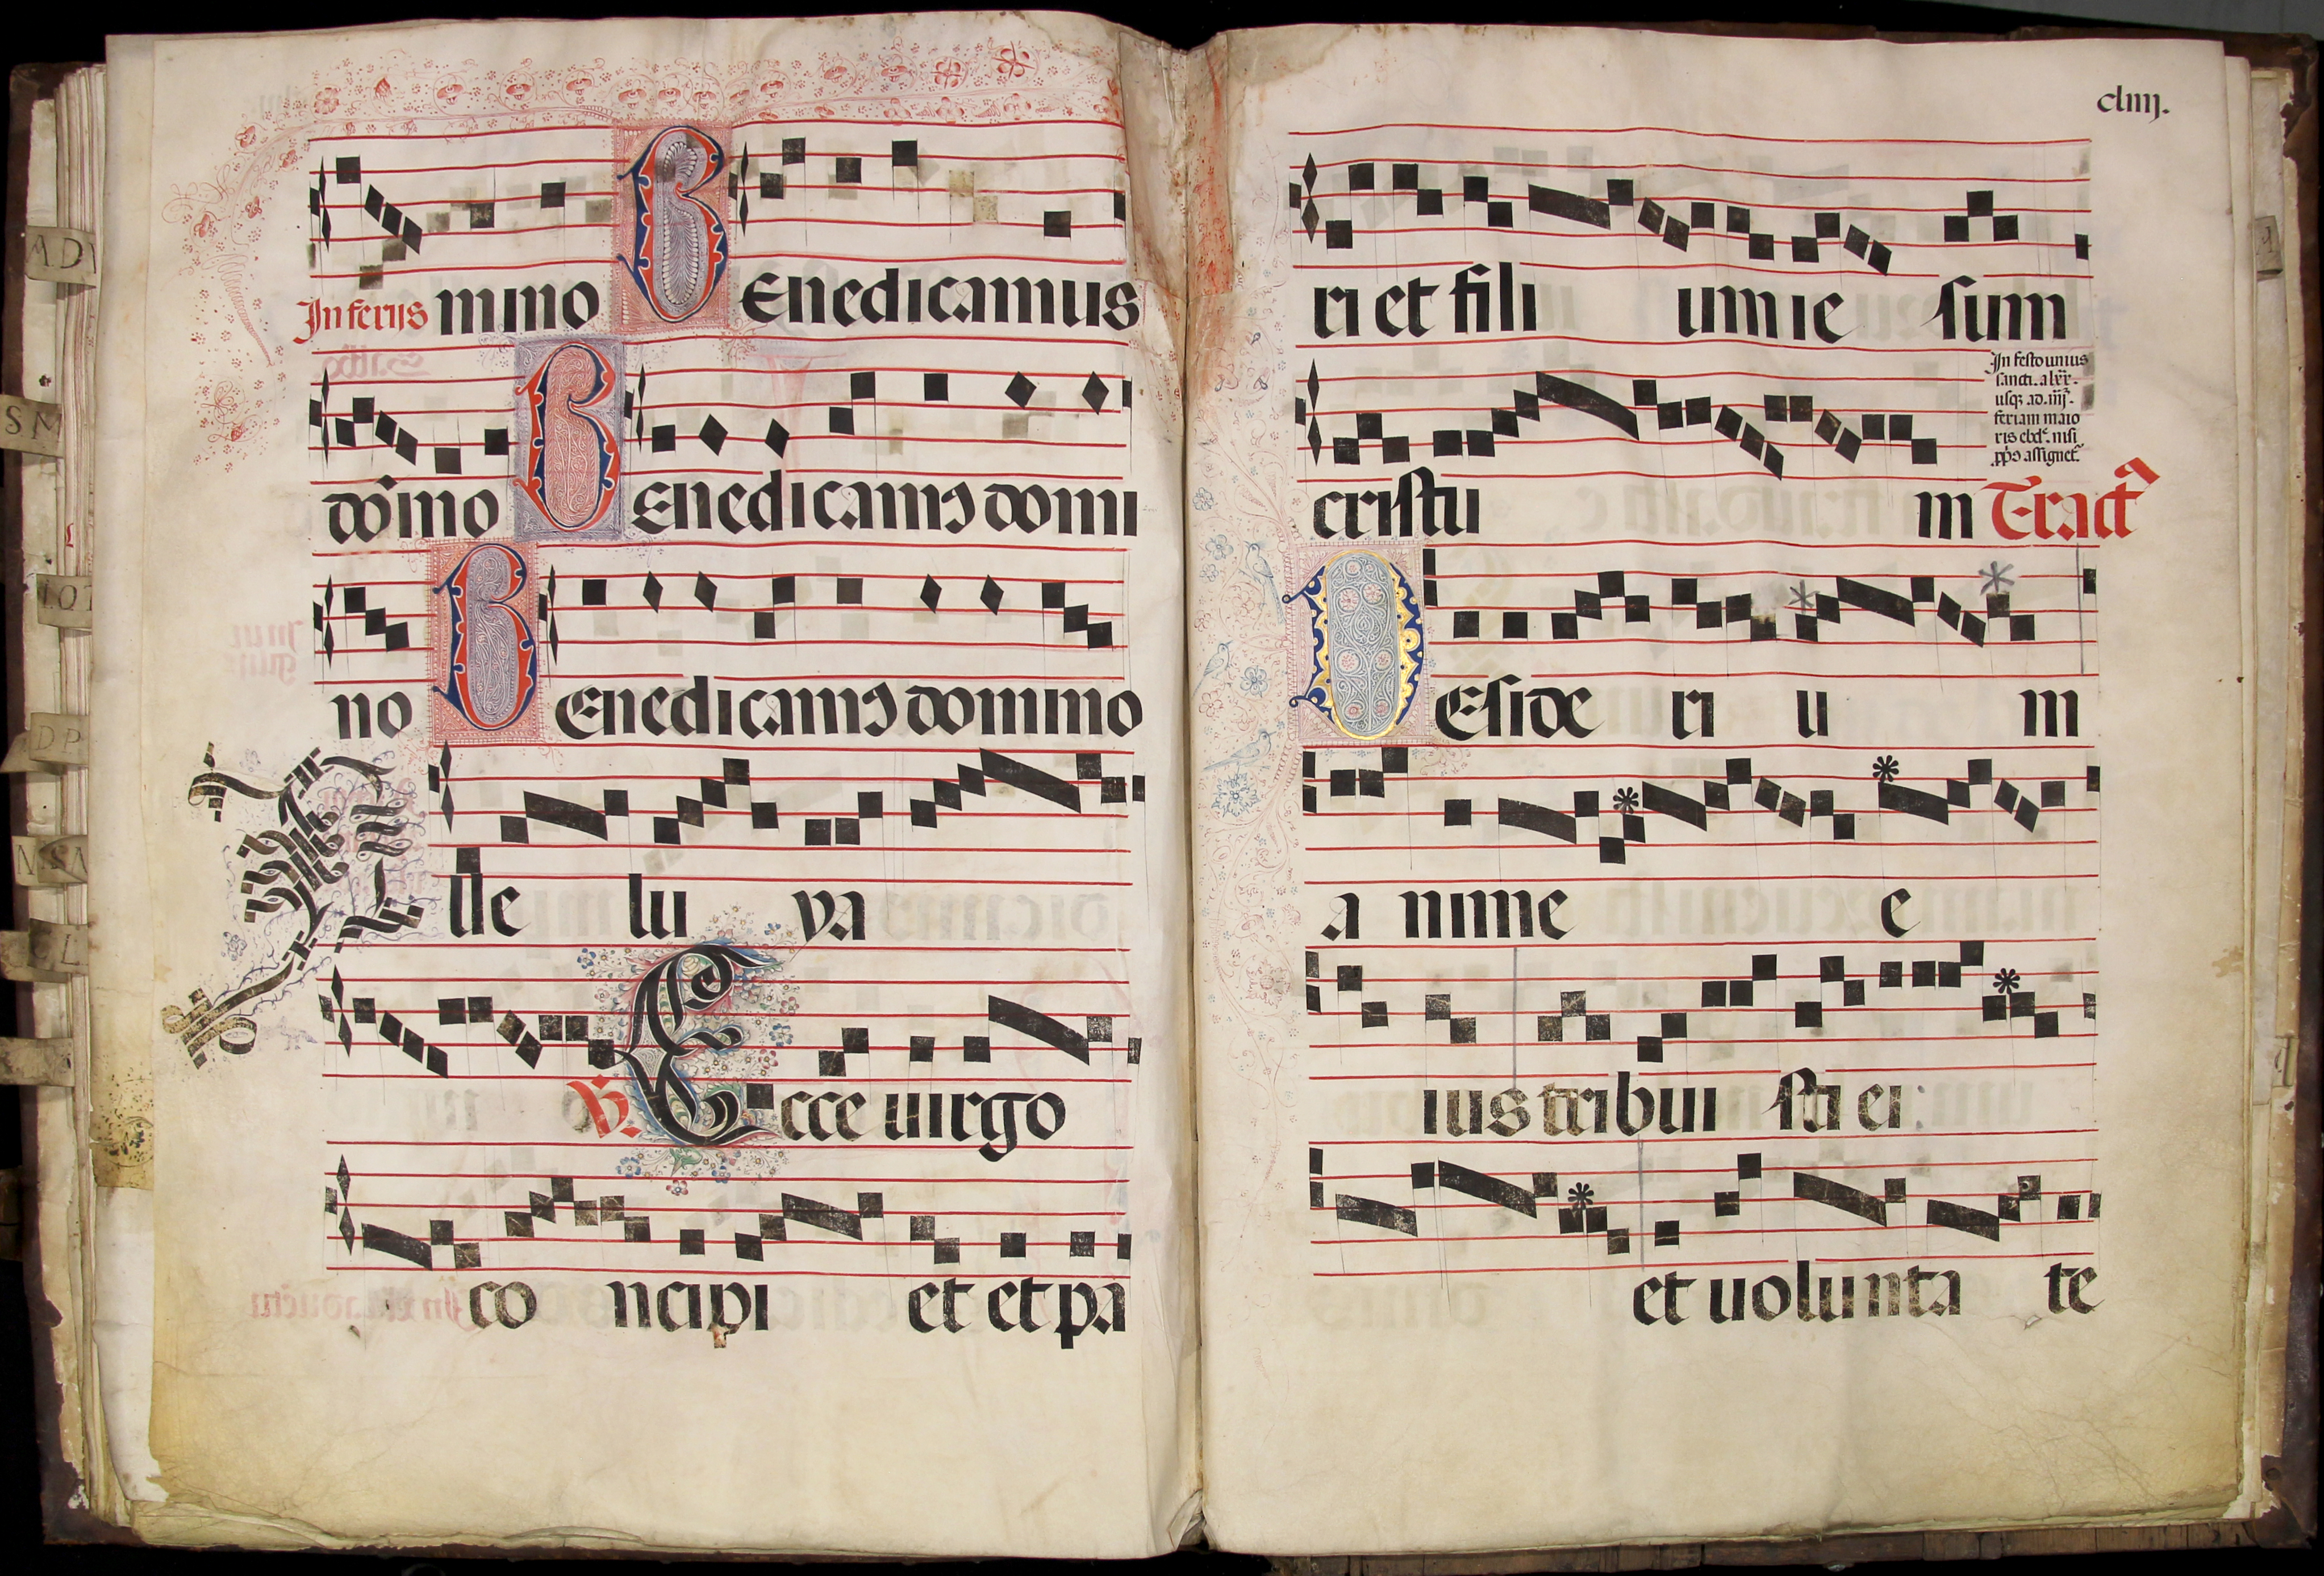 In feriis mino BEnedicamus
do͞mino BEnedicamꝰ domi
no BEnedicamꝰ domino
Alle lu ya
℣. Ecce uirgo
co ncipi et et pa
cliiij.
ri et fili um ie sum
In festo unius
sancti. a lxx̄.
usqꝫ ad .iiij.
feriam maio
ris ebd. nisi
assignet
cristu m Tract
DEside ri u m
a nime e
ius tribui sti ei:
et uolunta te
AD
SM
DP
CL